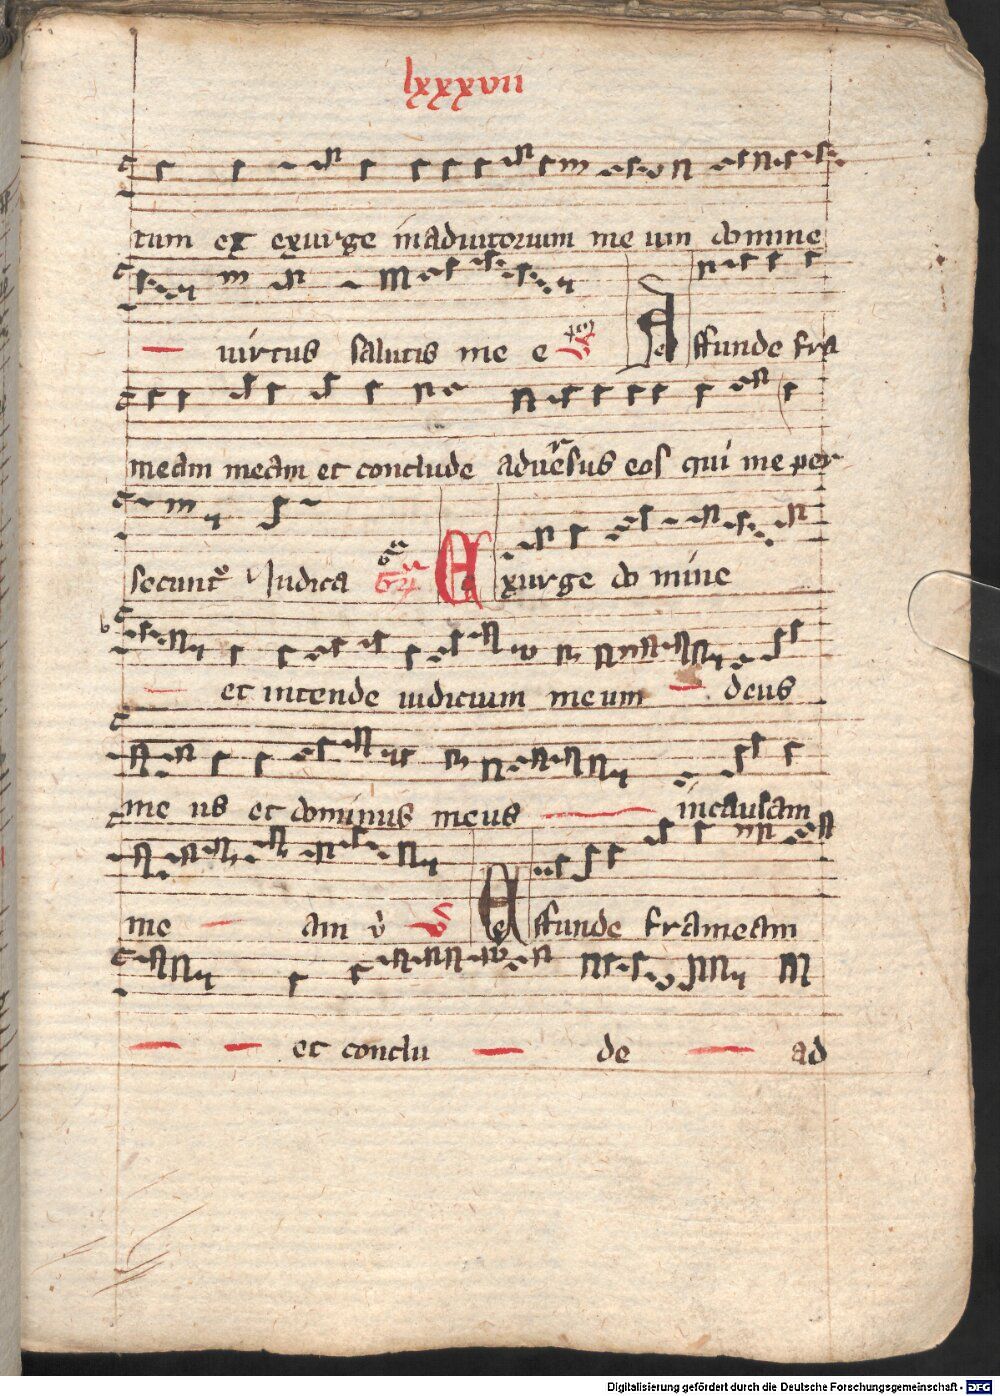 lxxxvii
tum et exurge in adiutorium me um domine
uirtus salutis me e
Effunde fra
meam meam et conclude aduersus eos qui me per
secunt² Iudica Gra Exurge do mine
et intende iudicium me um deus
me us et dominus meus in causam
me am v Effunde frameam
et conclu de ad
Digitalisierung gefördert durch die Deutsche Forschungsgemeinschaft - DFG